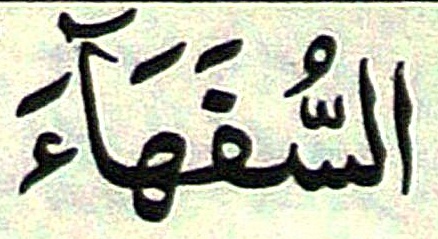 السُّفَهَآءَ